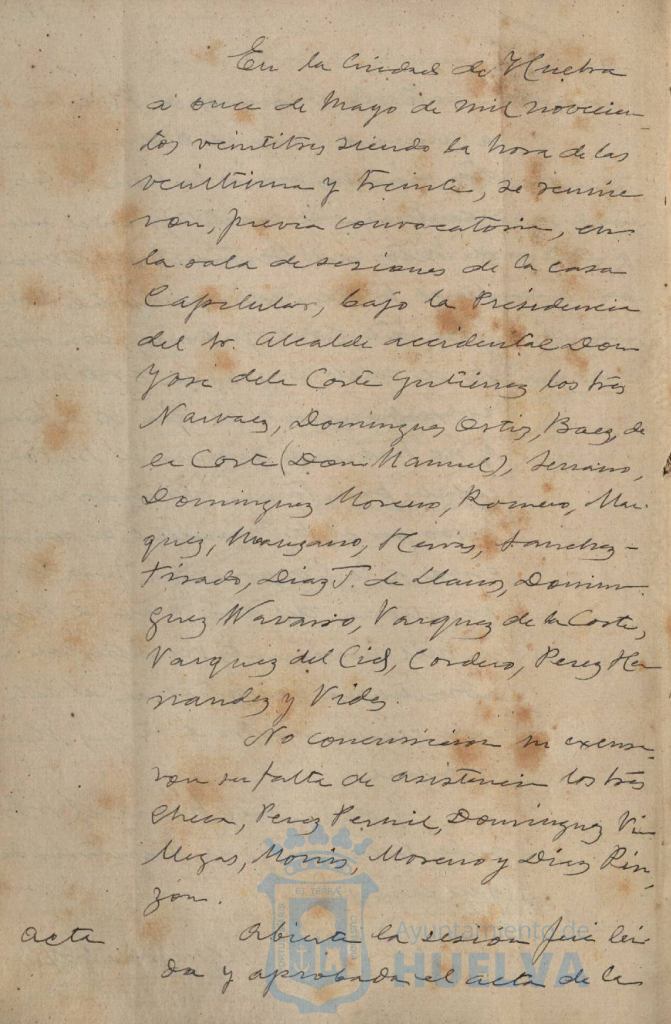 En la Ciudad de Huelva
a once de Mayo de mil novecien-
tos veintitres siendo la hora de las
veintiuna y treinta, se reunie
ron, previa convocatoria, en
la sala de sesiones de la casa
Capitular, bajo la Presidencia
del Sr. Alcalde accidental Don
José de la Corte Gutiérrez los Sres
Narvaez, Dominguez Ortiz, Baez, de
la Corte (Don Manuel), Serrano,
Dominguez Moreno, Romero, Mar-
quez, Manzano, Hervas, Sanchez-
Tirado, Diaz F. de Llanos, Domin-
guez Navarro, Vazquez de la Corte,
Vazquez del Cid, Cordero, Perez Her-
nandez y Vides.
No concurrieron ni excusa-
ron su falta de asistencia los Sres
Checa, Perez Pernil, Dominguez Vi-
llegas, Morris, Moreno y Diaz Pin-
zón.
acta
Abierta la sesion fué lei-
da y aprobada el acta de la
Ayuntamiento de
HUELVA